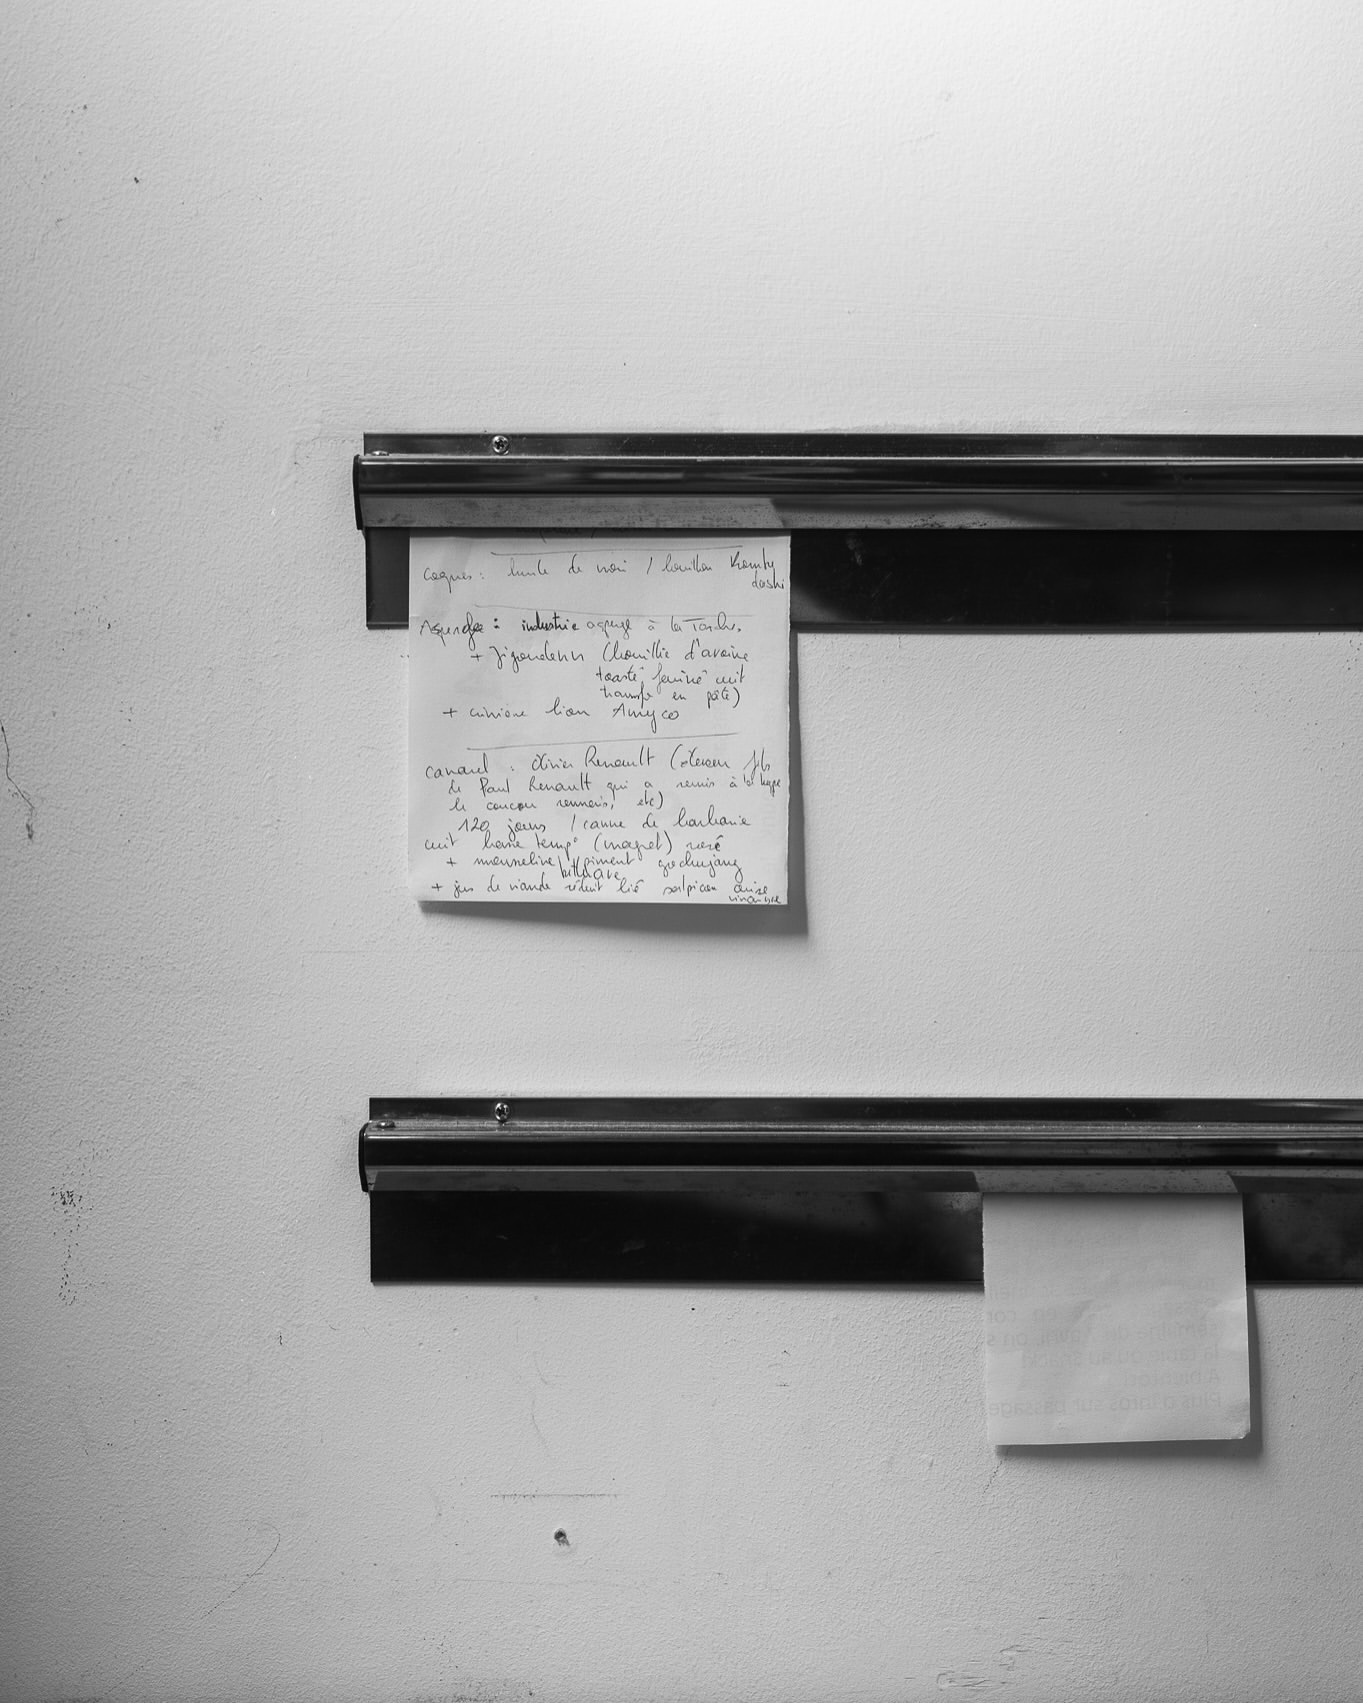 coques : huile de noix / bouillon Kombu
dashi
Asperge : industrie asperge à la
+ (bouillie d'avoine
toasté fariné cuit
transfo en pâte)
+ lion Amyco
canard : Olivier Renault (éleveur fils
de Paul Renault qui a remis à la page
le coucou rennais, etc)
120 jours / canne de barbarie
cuit basse temp° (magret) rosé
+ mousseline piment gochujang
betterave
+ jus de viande réduit lié salpicon cerise
vinaigre
la table ou au snack
Plus d'infos sur passage